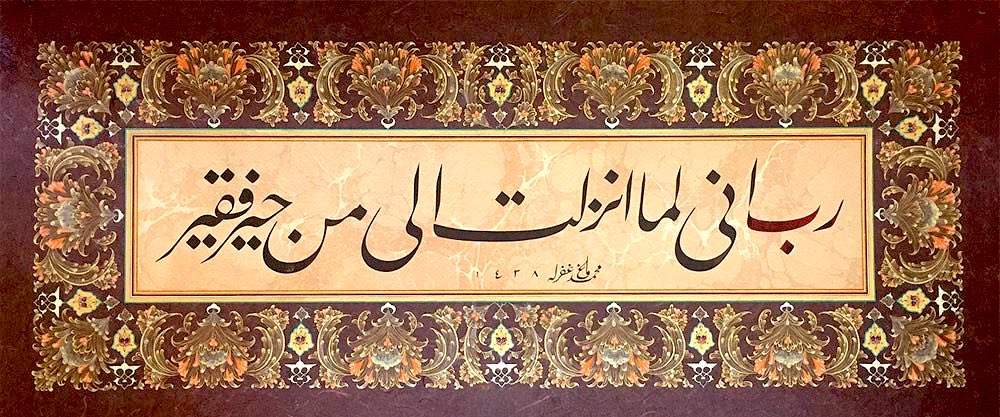 رب انی لما انزلت الی من خیر فقیر
محمد غفرله ١٤٣٨